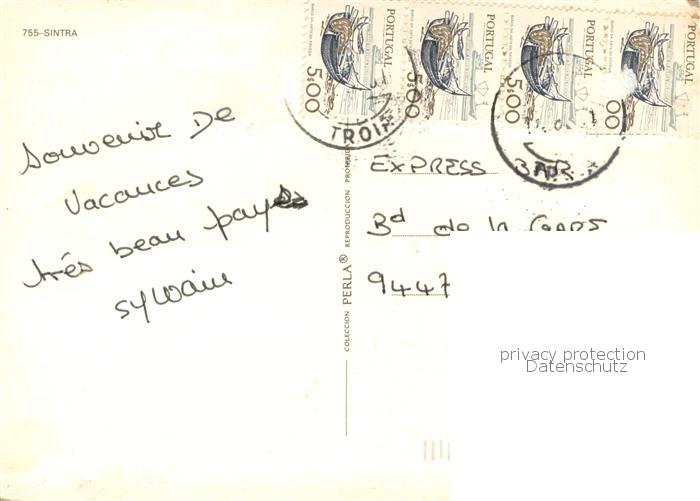 755-SINTRA
PORTUGAL 5$00
PORTUGAL 5$00
PORTUGAL 5$00
PORTUGAL 00
TROIA
Souvenir De
Vacances
très beau pays
sylvain
COLECCION PERLA® REPRODUCCION PROHIBIDA
EXPRESS BAR
Bd de la GARE
9447
privacy protection
Datenschutz